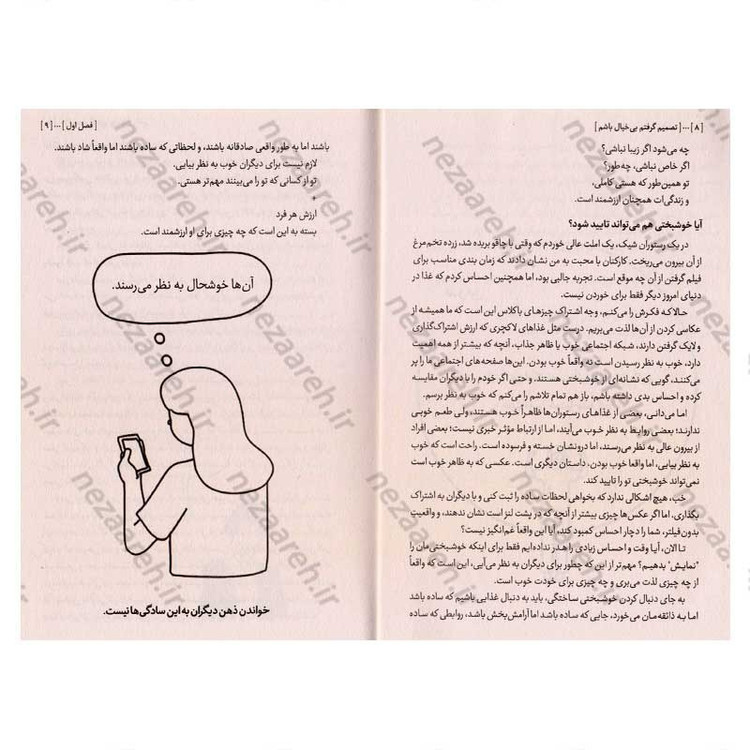 [ ۸ ]...[ تصمیم گرفتم بی‌خیال باشم ]
چه می‌شود اگر زیبا نباشی؟
اگر خاص نباشی، چه‌طور؟
تو همین‌طور که هستی کاملی،
و زندگی‌ات همچنان ارزشمند است.
آیا خوشبختی هم می‌تواند تایید شود؟
در یک رستوران شیک، یک املت عالی خوردم که وقتی با چاقو بریده شد، زرده تخم‌مرغ
از آن بیرون می‌ریخت. کارکنان با محبت به من نشان دادند که زمان بندی مناسب برای
فیلم گرفتن از آن چه موقع است. تجربه جالبی بود، اما همچنین احساس کردم که غذا در
دنیای امروز دیگر فقط برای خوردن نیست.
حالا که فکرش را می‌کنم، وجه اشتراک چیزهای باکلاس این است که ما همیشه از
عکاسی کردن از آن‌ها لذت می‌بریم. درست مثل غذاهای لاکچری که ارزش اشتراک‌گذاری
و لایک گرفتن دارند، شبکه اجتماعی خوب یا ظاهر جذاب، آنچه که بیشتر از همه اهمیت
دارد، خوب به نظر رسیدن است نه واقعاً خوب بودن. این‌ها صفحه‌های اجتماعی ما را پر
می‌کنند، گویی که نشانه‌ای از خوشبختی هستند. و حتی اگر خودم را با دیگران مقایسه
کرده و احساس بدی داشته باشم، باز هم تمام تلاشم را می‌کنم که خوب به نظر برسم.
اما می‌دانی، بعضی از غذاهای رستوران‌ها ظاهراً خوب هستند، ولی طعم خوبی
ندارند؛ بعضی روابط به نظر خوب می‌آیند، اما از ارتباط مؤثر خبری نیست؛ بعضی افراد
از بیرون عالی به نظر می‌رسند، اما درونشان خسته و فرسوده است. راحت است که خوب
به نظر بیایی، اما واقعا خوب بودن، داستان دیگری است. عکسی که به ظاهر خوب است
نمی‌تواند خوشبختی تو را تایید کند.
خب، هیچ اشکالی ندارد که بخواهی لحظات ساده را ثبت کنی و با دیگران به اشتراک
بگذاری. اما اگر عکس‌ها چیزی بیشتر از آنچه که در پشت لنز است نشان ندهند، و واقعیت
بدون فیلتر، شما را دچار احساس کمبود کند، آیا این واقعاً غم‌انگیز نیست؟
تا الان، آیا وقت و احساس زیادی را هدر نداده‌ایم فقط برای اینکه خوشبختی‌مان را
"نمایش" بدهیم؟ مهم‌تر از این که چطور برای دیگران به نظر می‌آیی، این است که واقعاً
از چه چیزی لذت می‌بری و چه چیزی برای خودت خوب است.
به جای دنبال کردن خوشبختی ساختگی، باید به دنبال غذایی باشیم که ساده باشد
اما به ذائقه‌مان می‌خورد، جایی که ساده باشد اما آرامش‌بخش باشد، روابطی که ساده
[ فصل اول ]...[ ۹ ]
باشند اما به طور واقعی صادقانه باشند، و لحظاتی که ساده باشند اما واقعاً شاد باشند.
لازم نیست برای دیگران خوب به نظر بیایی.
تو از کسانی که تو را می‌بینند مهم‌تر هستی.
*
ارزش هر فرد
بسته به این است که چه چیزی برای او ارزشمند است.
آن‌ها خوشحال به نظر می‌رسند.
خواندن ذهن دیگران به این سادگی‌ها نیست.
nezaareh.ir